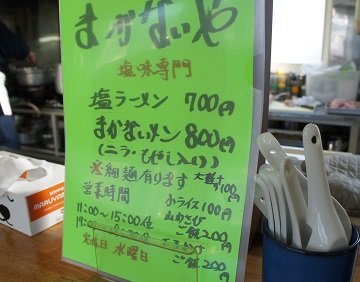 まかないや
塩味専門
塩ラーメン 700円
まかないメン 800円
(ニラ・もやし入り)
※細麺有ります 大盛り100円
営業時間
小ライス 100円
11:00〜15:00位
山わさび
ご飯 200円
定休日 水曜日
ご飯 200円
MARUYAMA